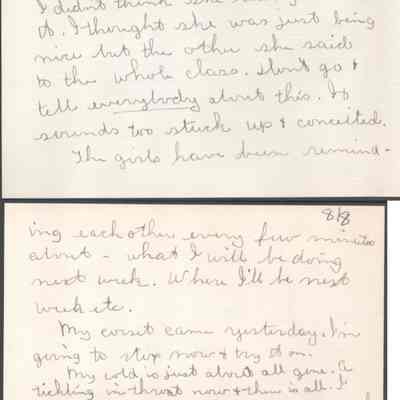 I didn't think she
it. I thought she was just being
nice but the other she said
to the whole class. Don't go &
tell everybody about this. It
sounds too stuck up & conceited.
The girls have been remind-
8/8
ing each other every few minutes
about - what I will be doing
next week. Where I'll be next
week etc.
My corset came yesterday. I'm
going to stop now & try it on.
My cold is just about all gone. a
tickling in throat now & then is all. I